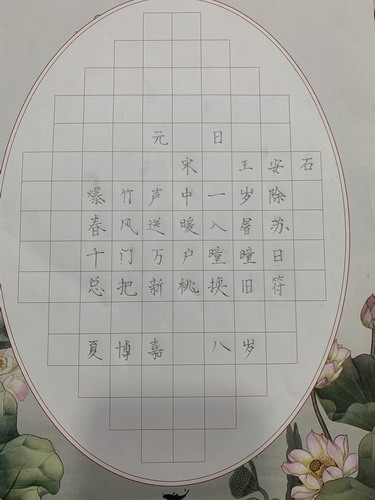 元日
宋 王安石
爆竹声中一岁除
春风送暖入屠苏
千门万户曈曈日
总把新桃换旧符
夏博嘉 八岁